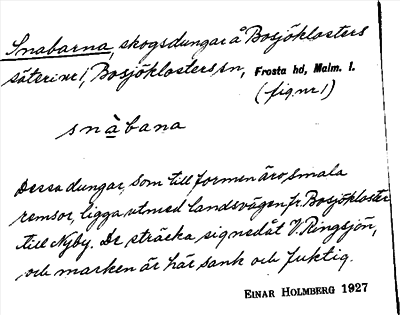 Snabarna, skogsdungar å Bosjöklosters
säteri nr 1, Bosjöklosters sn, Frosta hd, Malm. l.
(fig nr 1)
snàbana
Dessa dungar, som till formen äro smala
remsor, ligga utmed landsvägen fr. Bosjökloster
till Nyby. De sträcka sig nedåt V. Ringsjön,
och marken är här sank och fuktig.
EINAR HOLMBERG 1927